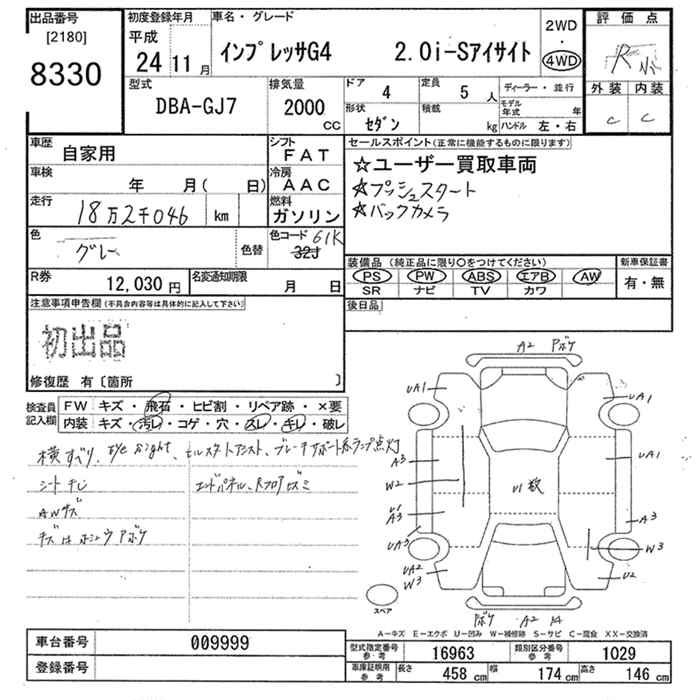 出品番号 初度登録年月 車名・グレード 2WD 評価点
[2180] 平成
8330 24 11月 インプレッサG4 2.0i-Sアイサイト 4WD R
型式 排気量 ドア 4 定員 5人 ディーラー・並行 外装 内装
DBA-GJ7 2000cc 形状 セダン 積載 kg モデル年式 年 C C
ハンドル 左・右
車歴 自家用 シフト FAT セールスポイント(正常に機能するものに限ります)
車検 年 月( 日) 冷房 AAC ☆ユーザー買取車両
☆プッシュスタート
走行 18万2千046 km 燃料 ガソリン ☆バックカメラ
色 グレー 色替 色コード 61K
32J
装備品(純正品に限り○をつけてください) 新車保証書
R券 12,030円 名変通知期限 月 日 PS PW ABS エアB AW 有・無
SR ナビ TV カワ
注意事項申告欄(不具合内容等は具体的に記入して下さい) 後日品
初出品
修復歴 有〔箇所 〕
検査員記入欄 FW キズ・飛石・ヒビ割・リペア跡・×要
内装 キズ・汚レ・コゲ・穴・スレ・キレ・破レ
横すべり、Eye sight、ヒルスタートアシスト、ブレーキサポート系ランプ点灯
AWキズ
A2 アボケ
UA1 UA1
A3 UA1
W2 U1数
U1
A3 A3
UA3 W3
UA2
W3 U2
スペア
A2
A-キズ E-エクボ U-凹み W-補修跡 S-サビ C-腐食 XX-交換済
車台番号 009999 型式指定番号参考 16963 類別区分番号参考 1029
登録番号 車庫証明用参考 長さ 458cm 幅 174cm 高さ 146cm